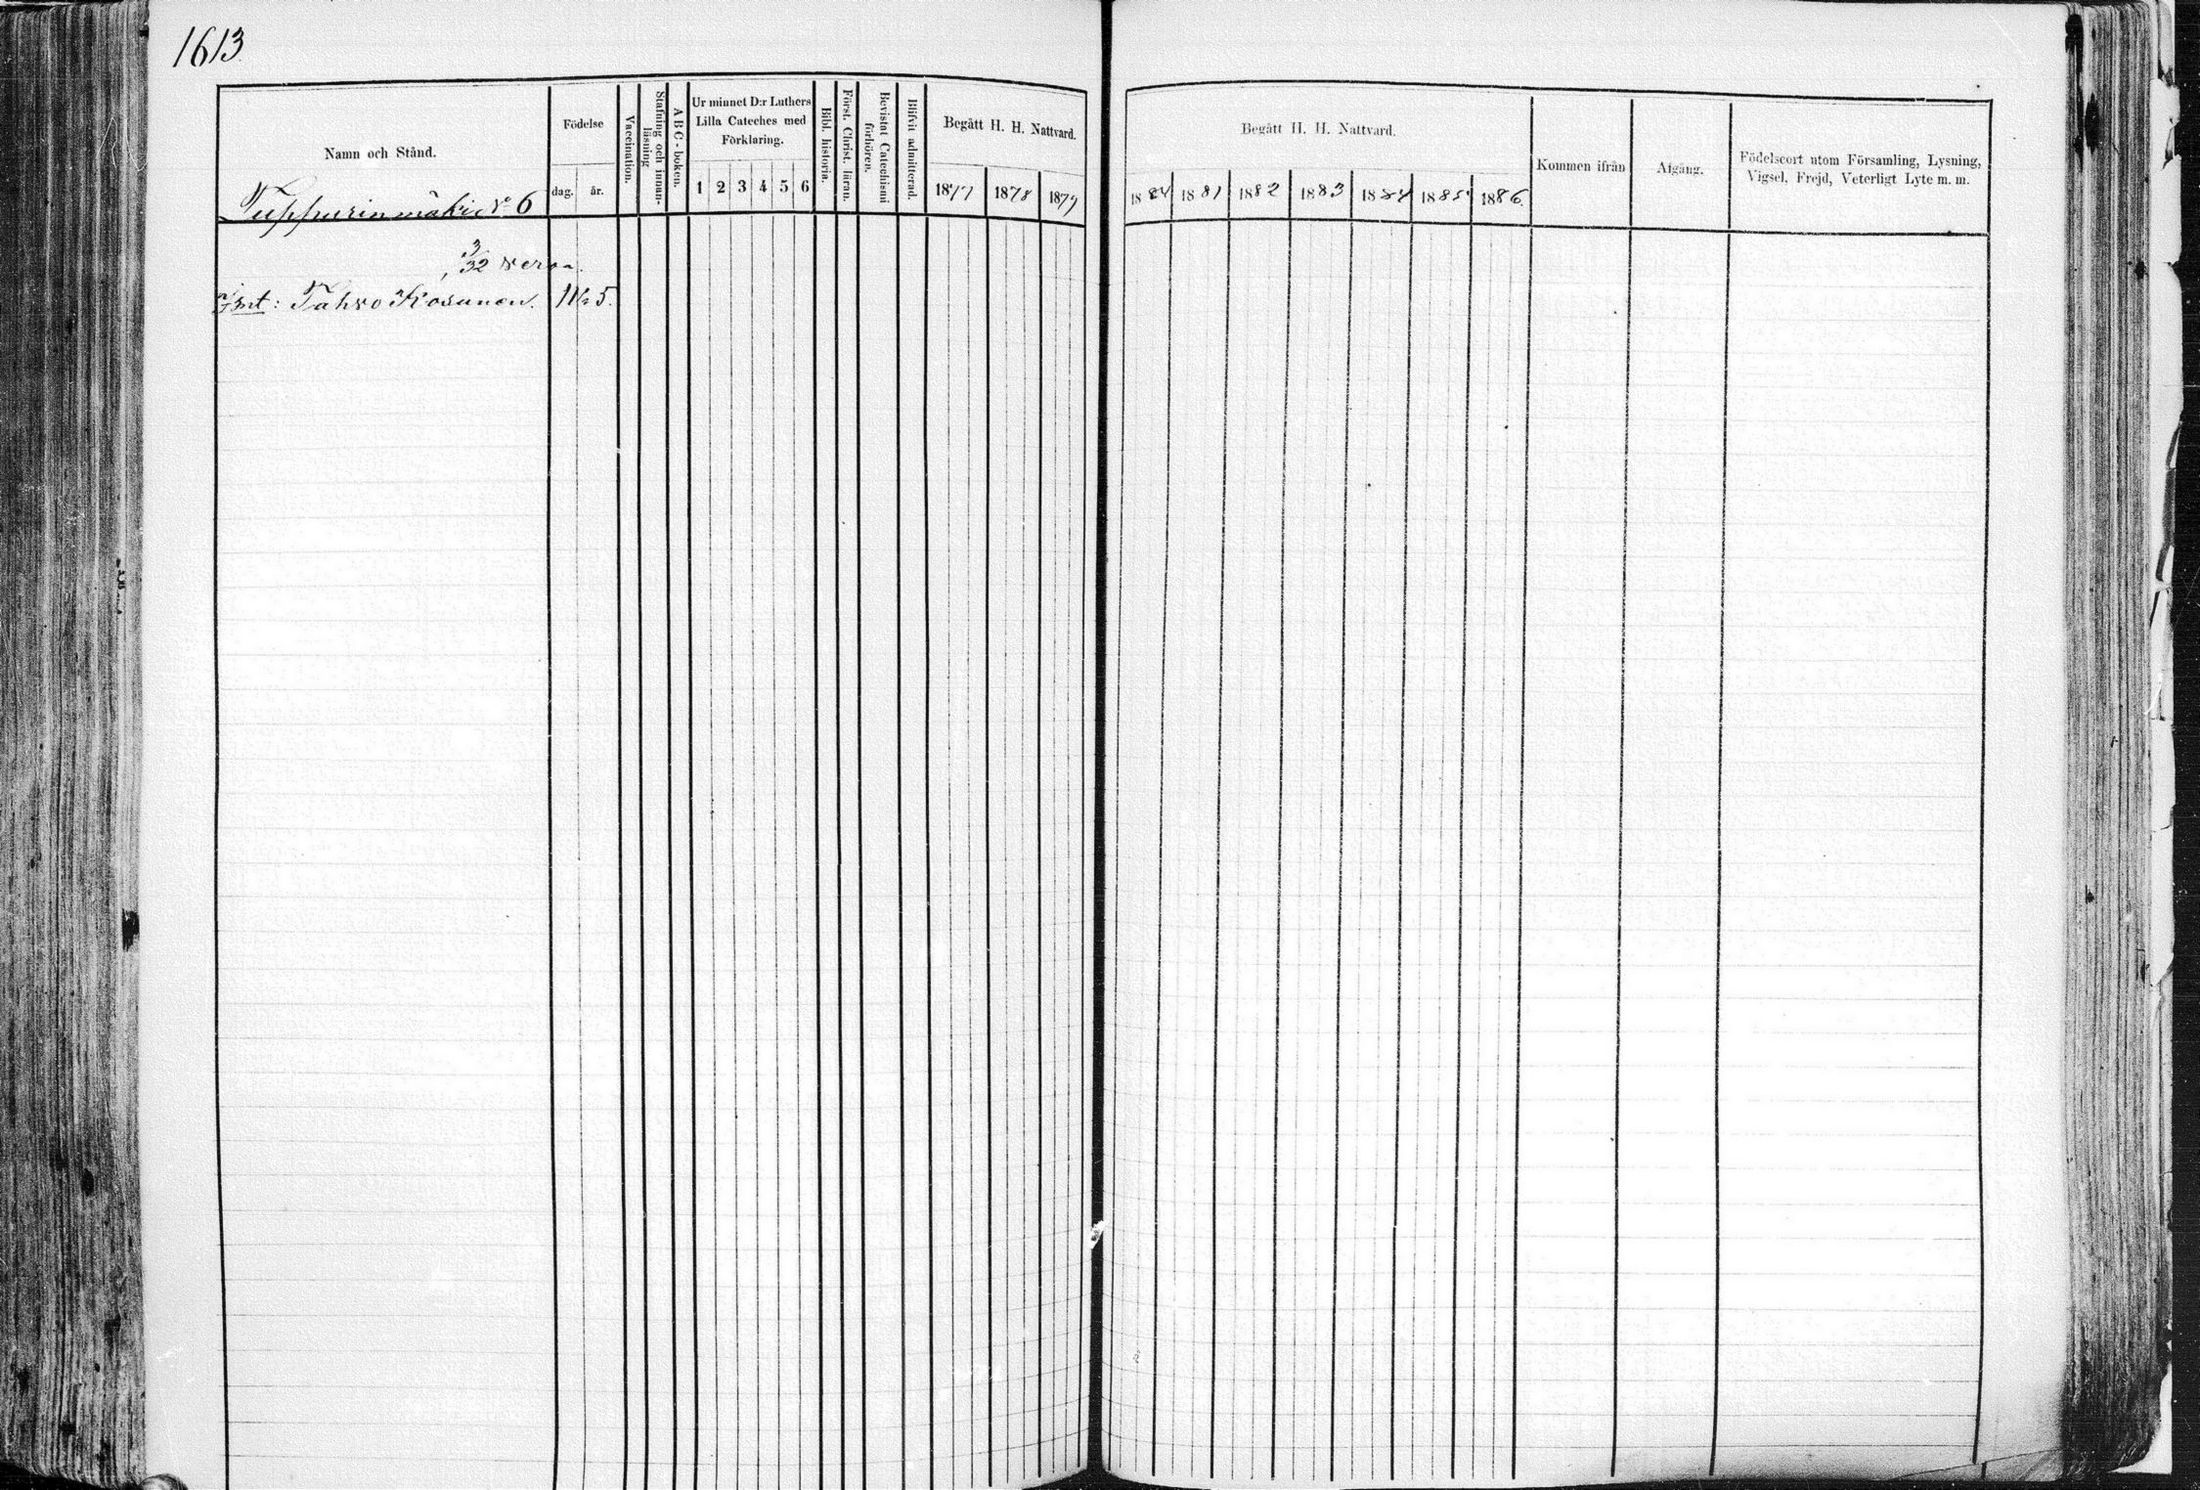 1613
Namn och Stånd.
Tuppurinmäki No 6
Födelse
dag.
år.
Vaccination.
Stafning och innanläsning
ABC-boken.
Ur minnet D:r Luthers
Lilla Cateches med
Förklaring.
1 2 3 4 5 6
Bibl. historia.
Först. Christ. läran.
Bevistat Catechismi
förhören.
Blifvit admitterad.
Begått H. H. Nattvard.
1877 1878 1879
Begått H. H. Nattvard.
1881 1882 1883 1884 1885 1886
Kommen ifrån
Afgång.
Födelseort utom Församling, Lysning,
Vigsel, Frejd, Veterligt Lyte m. m.
3/32 veroa.
Tahvo Kosunen. No 5.